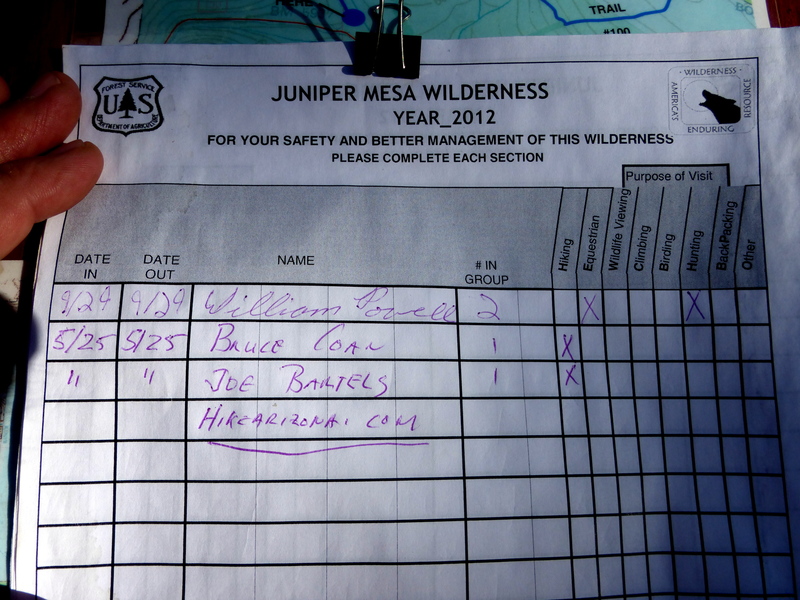 HERE
TRAIL
#100
FOREST SERVICE
U S
DEPARTMENT OF AGRICULTURE
JUNIPER MESA WILDERNESS
YEAR_2012
FOR YOUR SAFETY AND BETTER MANAGEMENT OF THIS WILDERNESS
PLEASE COMPLETE EACH SECTION
· WILDERNESS ·
AMERICA'S
RESOURCE
ENDURING
Purpose of Visit
DATE IN DATE OUT NAME # IN GROUP Hiking Equestrian Wildlife Viewing Climbing Birding Hunting BackPacking Other
9/29 9/29 William Powell 2 X X
5/25 5/25 BRUCE COAN 1 X
" " JOE BARTELS 1 X
HIKEARIZONA.COM